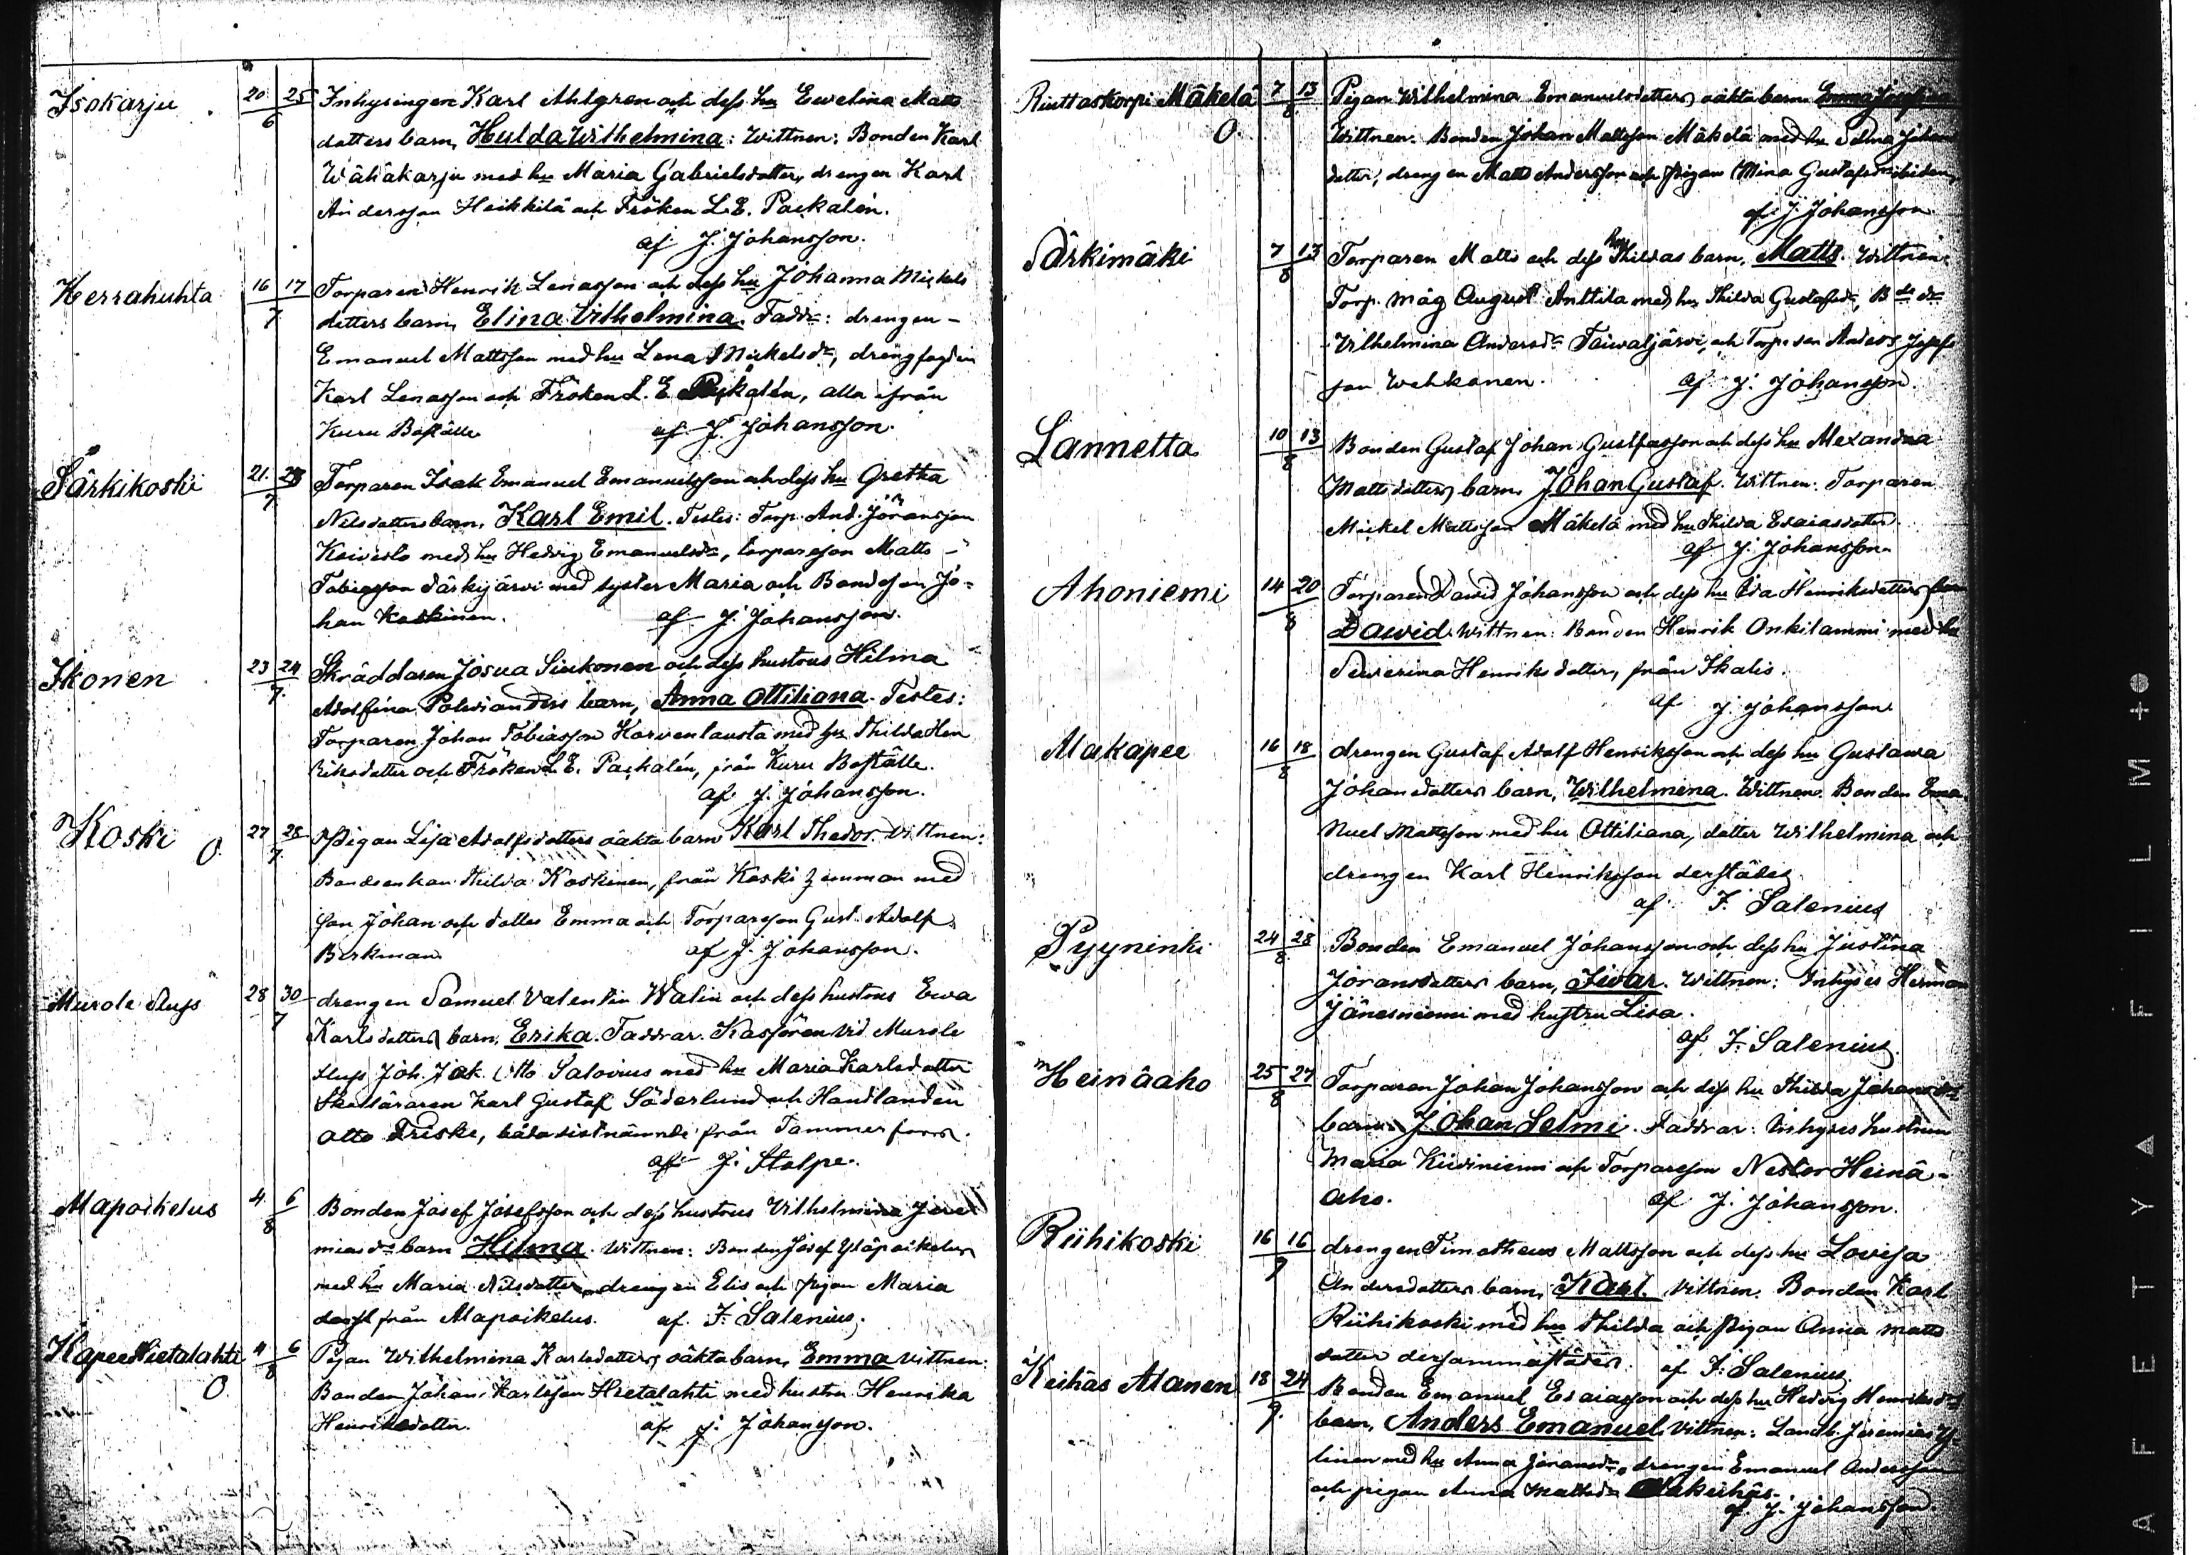 Isokarju 20 25 Inhysingen Karl Ahlgren och dess hu Ewelina Matts
6
dotters barn, Hulda Wilhelmina: Wittnen: Bonden Karl
Wähäkarju med hu Maria Gabrielsdotter, drengen Karl
Andersson Heikkilä och Fröken L. E. Packalén.
af J. Johansson.
Kerrahuhta 16 17 Torparen Henrik Lenasson och dess hu Johanna Mickels
7
dotters barn, Elina Vilhelmina. Faddr: drengen
Emanuel Mattsson med hu Lena Mickelsdr, drengfogden
Karl Lenasson och Fröken L. E. Packalén, alla ifrån
Kuru Boställe af J. Johansson.
Särkikoski 21. 23 Torparen Isak Emanuel Emanuelsson och dess hu Gretha
7
Nilsdotters barn, Karl Emil. Testes: Torp. And. Jöransson
Koivisto med hu Hedvig Emanuelsdr, torpareson Matts
Tobiasson Särkijärvi med syster Maria och Bondeson Jo-
han Koskinen. af J. Johansson.
Ikonen 23 24 Skräddaren Josua Siukonen och dess hustrus Hilma
7.
Adolfina Polvianders barn, Anna Ottiliana. Testes:
Torparen Johan Tobiasson Korventausta med hu Thilda Hen
riksdotter och Fröken L. E. Packalén, från Kuru Boställe.
af J. Johansson.
Koski O. 27 28 Pigan Lisa Adolfsdotters oäkta barn Karl Thedor. Vittnen:
7.
Bondeenkan Thilda Koskinen, från Koski hemman med
son Johan och dotter Emma och Torpareson Gust. Adolf
Berkman af J. Johansson.
Murole Slups 28 30 drengen Samuel Valentin Walin och dess hustrus Ewa
7
Karlsdotters barn, Erika. Faddrar. Kassören vid Murole
slups Joh. Jak. Otto Salovius med hu Maria Karlsdotter
Karl Gustaf Söderlund och Handlanden
Otto Friske, båda sistnämnde från Tammerfors.
af J. Stolpe.
Alapoikelus 4 6 Bonden Josef Josefsson och dess hustrus Vilhelmina Jere
8
miasdrs barn Hilma. Wittnen: Bonden Josef Yläpoikelus
med hu Maria Nilsdotter, drengen Elis och pigan Maria
från Alapoikelus. af F. Salenius.
Kapee Hietalahti 4 6 Pigan Wilhelmina Karlsdotters oäkta barn, Emma vittnen:
O. 8
Bonden Johan Karlsson Hietalahti med hustru Henrika
Henriksdotter. af J. Johansson.
Riuttaskorpi Mäkelä 7 13 Pigan Wilhelmina Emanuelsdotters oäkta barn
O. 8
Wittnen. Bonden Johan Mattsson Mäkelä med hu Selma Johans
dotter, drengen Matts Andersson och Pigan Mina Gustafsdr
af J. Johansson
Särkimäki 7 13 Torparen Matts och dess hu Thildas barn, Matts. Wittnen:
8
Torp. måg August Anttila med hu Thilda Gustafsdr,
Vilhelmina Andersdr Taivaljärvi, och Torparen Anders Josefs
son Wehkonen. af J. Johansson.
Lannetta 10 13 Bonden Gustaf Johan Gustafsson och dess hu Alexandra
8
Mattsdotters barn, Johan Gustaf. Wittnen: Torparen
Mickel Mattsson Mäkelä med hu Thilda Esaiasdotter.
af J. Johansson.
Ahoniemi 14 20 Torparen David Johansson och dess hu Ida Henriksdotters barn
8
Dawid. Wittnen: Bonden Henrik Onkilammi med hu
Severina Henriksdotter, från Ikalis.
af J. Johansson
Alakapee 16 18 drengen Gustaf Adolf Henriksson och dess hu Gustawa
8
Johansdotters barn, Wilhelmina. Wittnen. Bonden Ema
nuel Mattsson med hu Ottiliana, dotter Wilhelmina och
drengen Karl Henriksson derstädes
af F. Salenius
Pyyninki 24 28 Bonden Emanuel Johansson och dess hu Justina
8
Joransdotters barn, Iivar. Wittnen: Inhyses Herman
Jänesniemi med hustru Lisa.
af F. Salenius
Heinäaho 25 27 Torparen Johan Johansson och dess hu Thilda Johansdrs
8
barn, Johan Selmi. Faddrar: Inhyses hustrun
Maria Kiviniemi och Torpareson Nestor Heinä-
aho. af J. Johansson.
Riihikoski 16 16 drengen Timotheus Mattsson och dess hu Lovisa
9
Andersdotters barn, Karl. Vittnen. Bonden Karl
Riihikoski med hu Thilda och pigan Anna Matts
dotter dersammastädes. af F. Salenius.
Keihäs Alanen 18 24 Bonden Emanuel Esaiasson och dess hu Hedvig Henriksdrs
9.
barn, Anders Emanuel, vittnen: Landb. Jeremias Y
linen med hu Anna Joransdr, drengen Emanuel Andersson
och pigan Anna Mattsdr Alakeihäs.
af J. Johansson.
AFETYAFILM